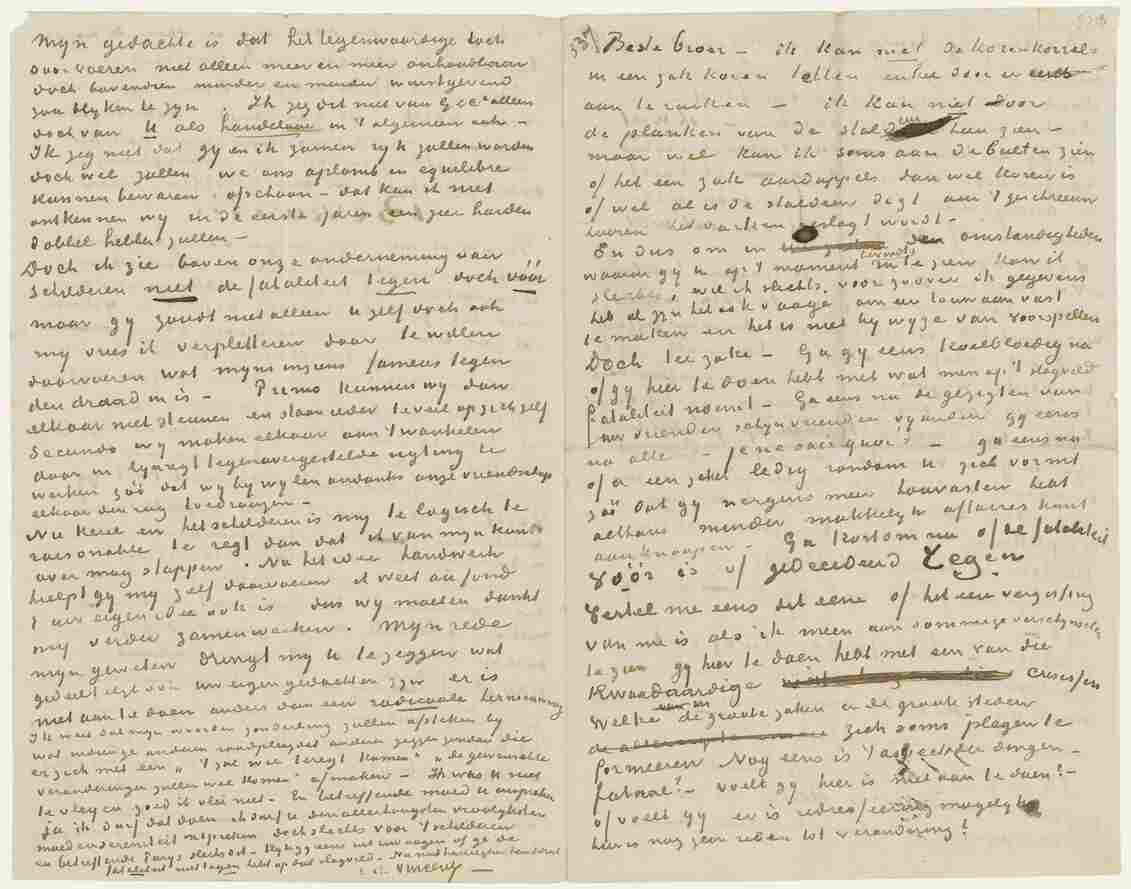 Mijn gedachte is dat het tegenwoordige toch
doorvoeren niet alleen meer en meer onhoudbaar
doch bovendien minder en minder winstgevend
zou blyken te zyn. Ik zeg dit niet van G&Cie alleen
doch van U als handelaar in 't algemeen ook –
Ik zeg niet dat gy en ik zamen ryk zullen worden
doch wel zullen we ons aplomb en equilibre
kunnen bewaren ofschoon – dat kan ik niet
ontkennen wy in de eerste jaren een zeer harden
dobbel hebben zullen –
Doch ik zie boven onze onderneming van
schilderen niet de fataliteit tegen doch vóór
maar gy zoudt niet alleen U zelf doch ook
my vrees ik verpletteren door te willen
doorvoeren wat myns inziens fameus tegen
den draad in is – Primo kunnen wy dan
elkaar niet steunen en staan ieder te veel op zich zelf
Secundo wy maken elkaar aan 't wankelen
door in lynregt tegenovergestelde rigting te
werken zóó dat wy by wylen ondanks onze vriendschap
elkaar den rug toedraaijen –
Nu kerel en het schilderen is my te logisch te
raisonable te regt dan dat ik van mijn kant
over mag stappen. Na het idee handwerk
helpt gy my zelf doorvoeren it weet au fond
't uw eigen idee ook is dus wy moeten dunkt
my verder zamenwerken. Mijn rede
myn geweten dringt my U te zeggen wat
gedeeltelyk ook uw eigen gedachten zyn er is
niet aan te doen anders dan een radicaale hernieuwing
Ik weet dat myn woorden zonderling zullen afsteken by
wat menige anderen raadpleegdet anderen zeggen zouden die
er zich met een „'t zal wel teregt komen" „de gewenschte
veranderingen zullen wel komen" afmaken – Ik was U niet
te vleyen goed ik vlei niet – En betreffende moed U inspreken
ja ik durf dat doen ik durf U den allerhoogsten vroolyksten
moed en sereniteit inspreken doch slechts voor 't schilderen
en betreffende Parys slechts dit –
fataliteit niet tegen hebt op dat slagveld – Nu met handdruk
t. à t. Vincent
Beste broer – ik kan niet de korenkorrels
in een zak koren tellen enkel door er
aan te ruiken – ik kan niet door
de planken van de staldeur heen zien –
maar wel kan ik soms aan de bulten zien
of het een zak aardappels dan wel koren is
of wel al is de staldeur digt aan 't geschreeuw
hooren het varken geslagt wordt –
En dus om in den omstandigheden
waarin gy U op 't moment bevindt in te zien kan ik
slechts, wil ik slechts voor zoover ik gegevens
heb al zyn het ook vaage om er touw aan vast
te maken en het is niet by wyze van voorspellen
Doch ter zake – Ga gy eens koelbloedig na
of gy hier te doen hebt met wat men op 't slagveld
fataliteit noemt – Ga eens na de gezigten van
uw vrienden schynvrienden vyanden gy eens
na alle – je ne sais quoi's – ga eens na
of er een zeker ledig rondom U zich vormt
zóó dat gy nergens meer houvasten hebt
althans minder makkelyk affaires kunt
aanknoopen – Ga kortom na of de fataliteit
vóór is of gedecideerd tegen
Vertel me eens dit eene of het een vergissing
van me is als ik meen aan sommige verschynselen
te zien gy hier te doen hebt met een van die
kwaadaardige crisissen
welke van in de groote zaken en de groote steden
zich soms plegen te
formeeren Nog eens is 't dingen –
fatal!– voelt gy hier is niet aan te doen?–
of voelt gy er is redresseering mogelyk
hier is nog geen reden tot verandering!